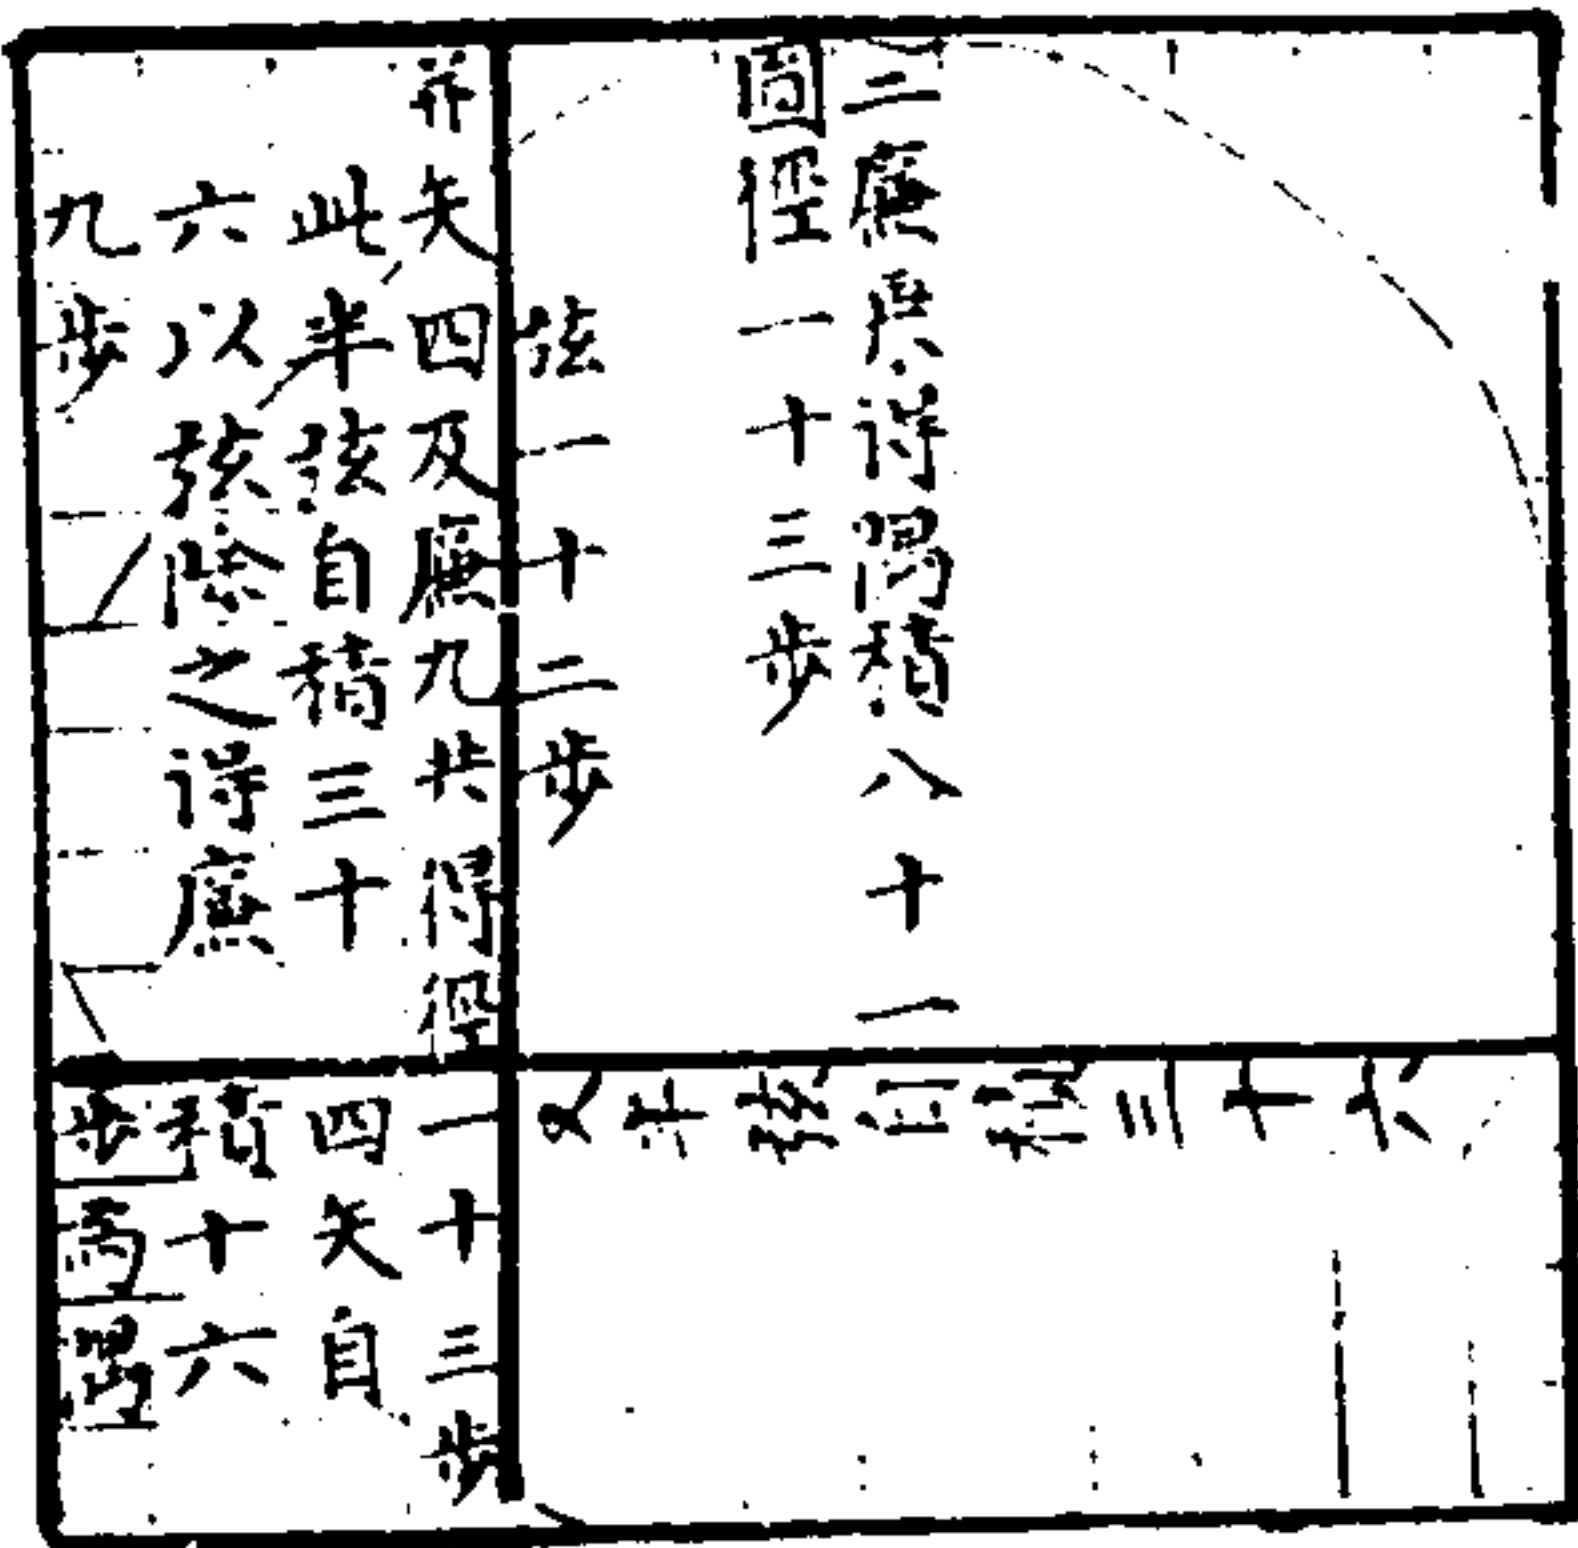 二廉與得隅積八十一
圓徑一十三步
弦一十二步
并矢四及廉九共得徑一十三步
此半弦自積三十
六以弦除之得廉
九步
四矢自
積十六
步為隅
又半弦自積三十六